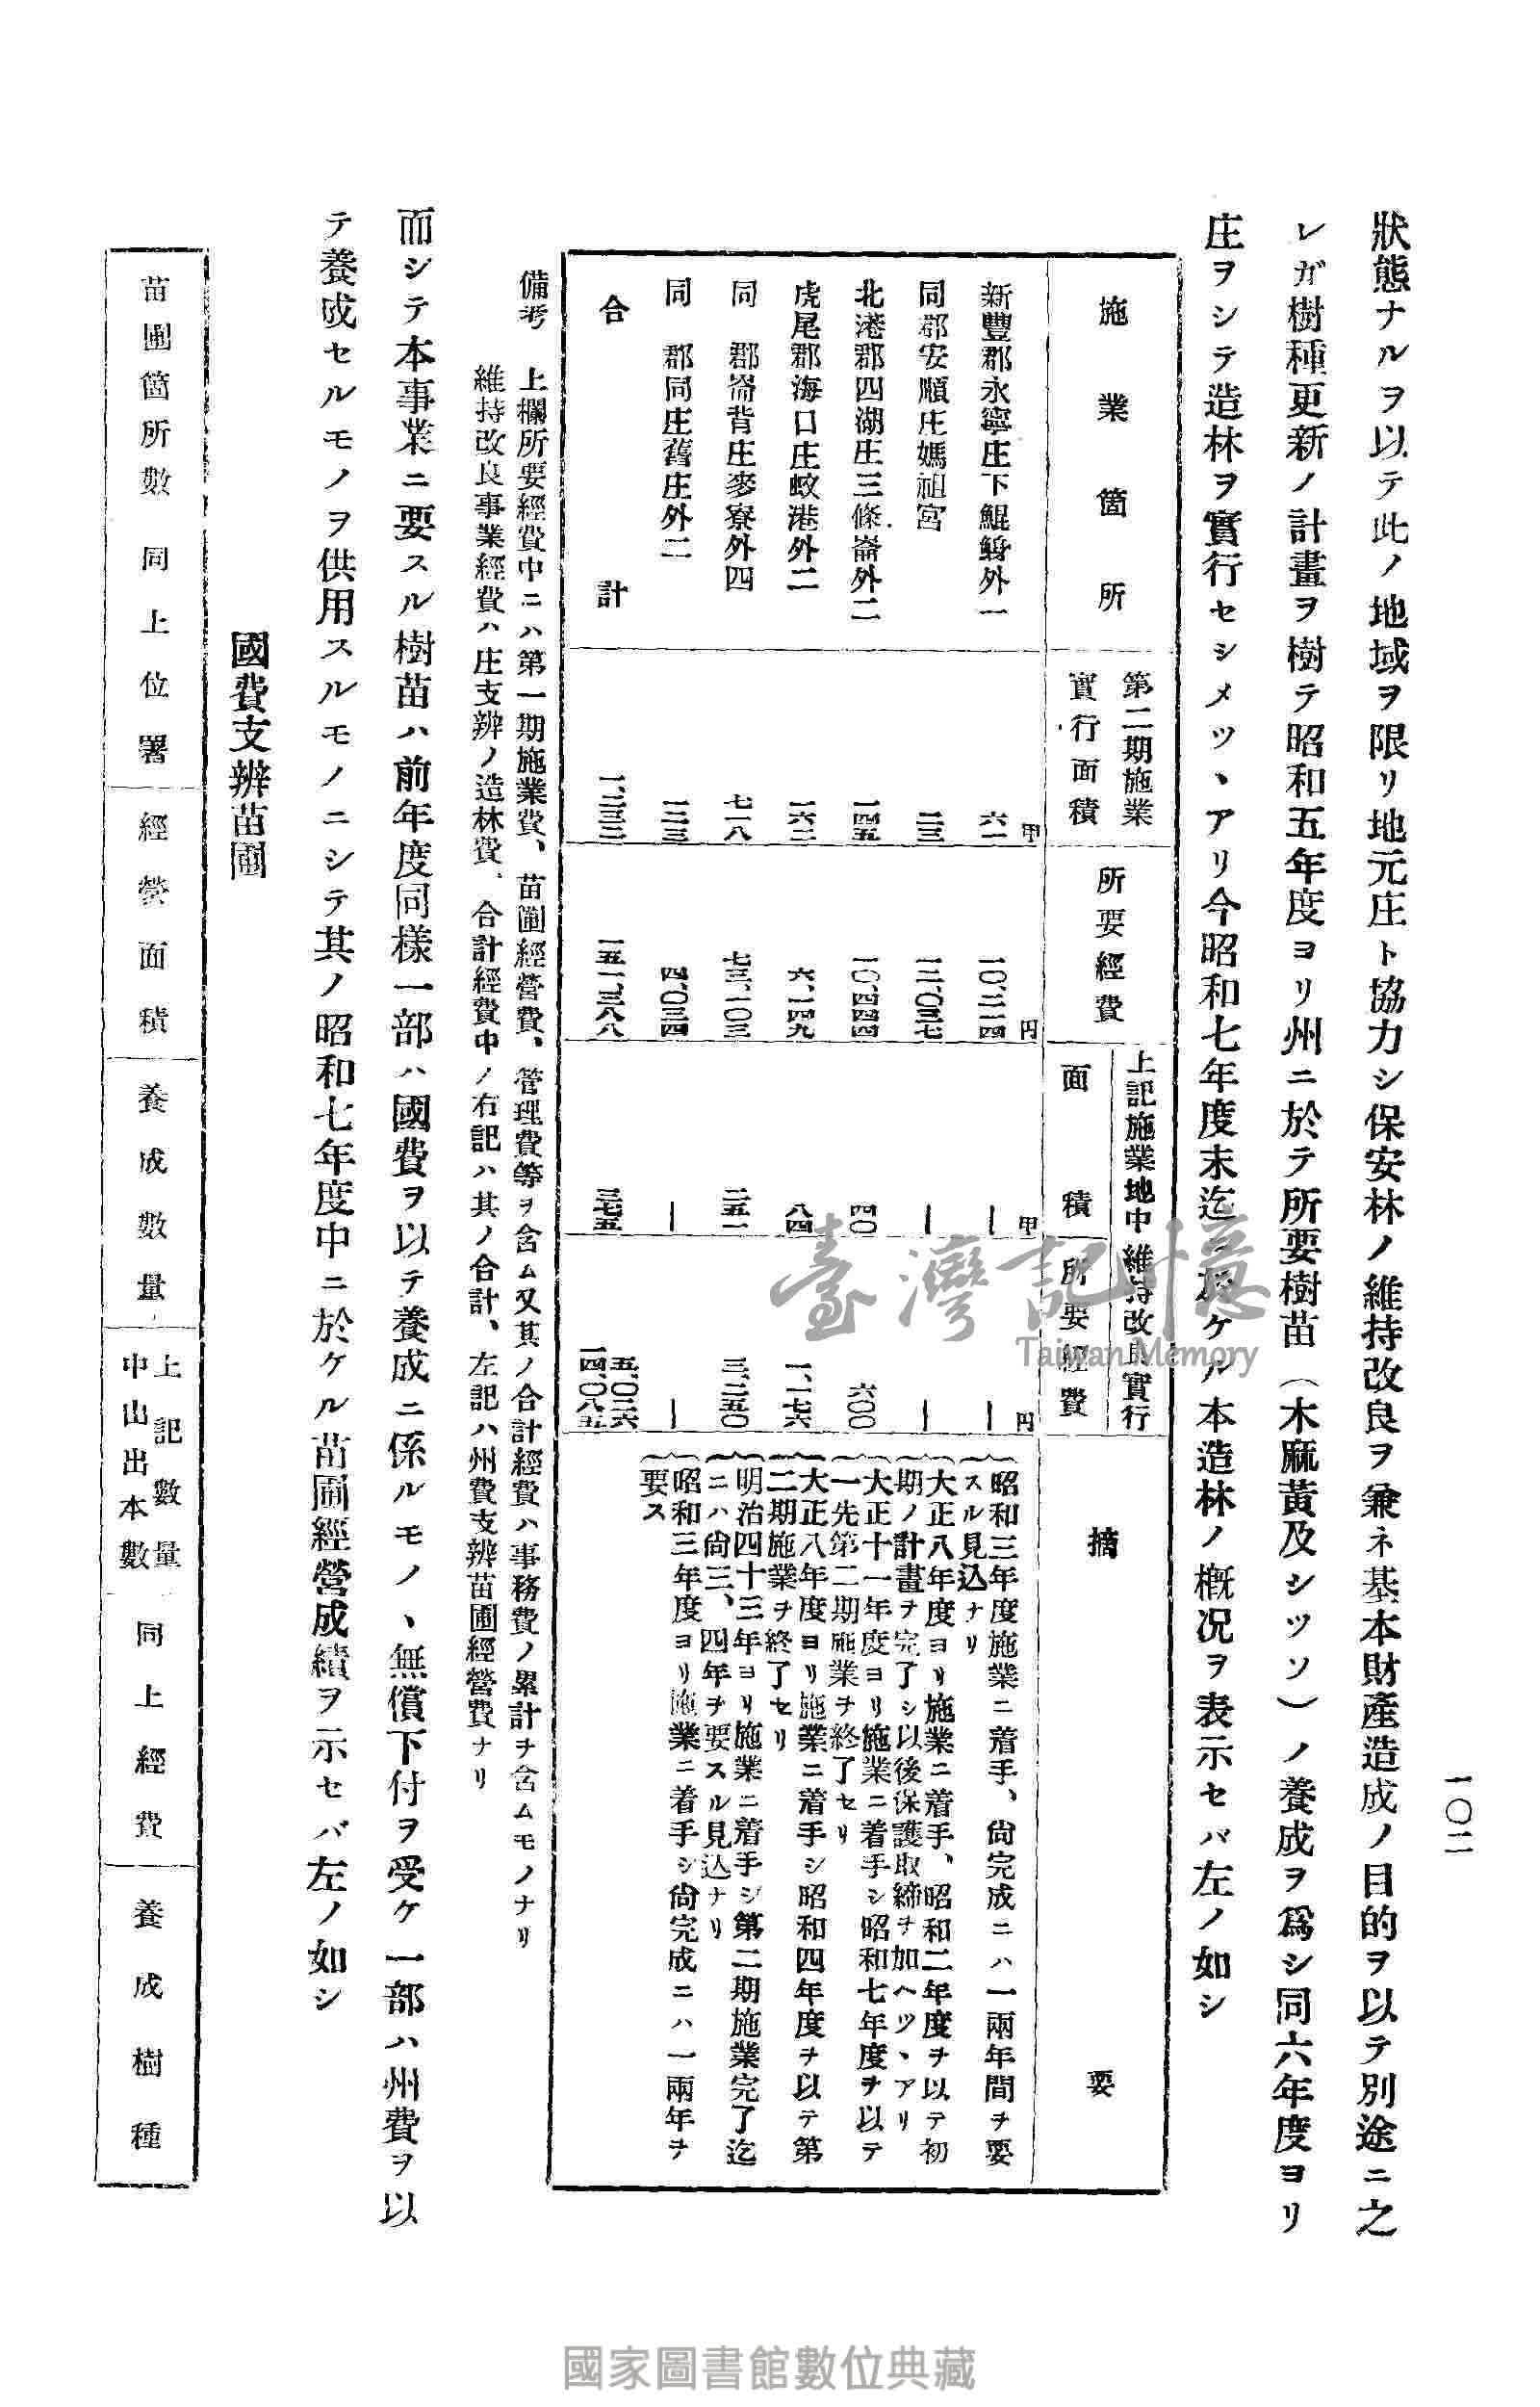 一〇二
狀態ナルヲ以テ此ノ地域ヲ限リ地元庄ト協力シ保安林ノ維持改良ヲ兼ネ基本財產造成ノ目的ヲ以テ別途ニ之
レガ樹種更新ノ計畫ヲ樹テ昭和五年度ヨリ州ニ於テ所要樹苗（木麻黃及シツソ）ノ養成ヲ爲シ同六年度ヨリ
庄ヲシテ造林ヲ實行セシメツヽアリ今昭和七年度末迄ニ於ケル本造林ノ槪況ヲ表示セバ左ノ如シ
施業箇所
第二期施業
實行面積
所要經費
上記施業地中維持改良實行
面積
所要經費
摘要
新豐郡永寧庄下鯤鯓外一
甲
六一
円
一〇、二一四
甲
—
円
—
昭和三年度施業ニ着手、尙完成ニハ一兩年間ヲ要
スル見込ナリ
同郡安順庄媽祖宮
二三
一二、〇三七
—
—
大正八年度ヨリ施業ニ着手、昭和二年度ヲ以テ初
期ノ計畫ヲ完了シ以後保護取締ヲ加ヘツヽアリ
北港郡四湖庄三條崙外二
一四五
一〇、四四四
四〇
六〇〇
大正十一年度ヨリ施業ニ着手シ昭和七年度ヲ以テ
一先第二期施業ヲ終了セリ
虎尾郡海口庄蚊港外二
一六二
六、一四九
八四
一、一七六
大正八年度ヨリ施業ニ着手シ昭和四年度ヲ以テ第
二期施業ヲ終了セリ
同郡崙背庄麥寮外四
七一八
七三、一〇三
二五一
三、二五〇
明治四十三年ヨリ施業ニ着手シ第二期施業完了迄
ニハ尙三、四年ヲ要スル見込ナリ
同郡同庄舊庄外二
一二三
四、〇三四
—
—
昭和三年度ヨリ施業ニ着手シ尙完成ニハ一兩年ヲ
要ス
合計
一、二三二
一五一、三八八
三七五
五、〇二六
一四、〇八五
備考 上欄所要經費中ニハ第一期施業費、苗圃經營費、管理費等ヲ含ム又其ノ合計經費ハ事務費ノ累計ヲ含ムモノナリ
維持改良事業經費ハ庄支辨ノ造林費、合計經費中ノ右記ハ其ノ合計、左記ハ州費支辨苗圃經營費ナリ
而シテ本事業ニ要スル樹苗ハ前年度同樣一部ハ國費ヲ以テ養成ニ係ルモノヽ無償下付ヲ受ケ一部ハ州費ヲ以
テ養成セルモノヲ供用スルモノニシテ其ノ昭和七年度中ニ於ケル苗圃經營成績ヲ示セバ左ノ如シ
國費支辨苗圃
苗圃箇所數
同上位署
經營面積
養成數量
上記數量
中山出本數
同上經費
養成樹種
臺灣記憶
Taiwan Memory
國家圖書館數位典藏